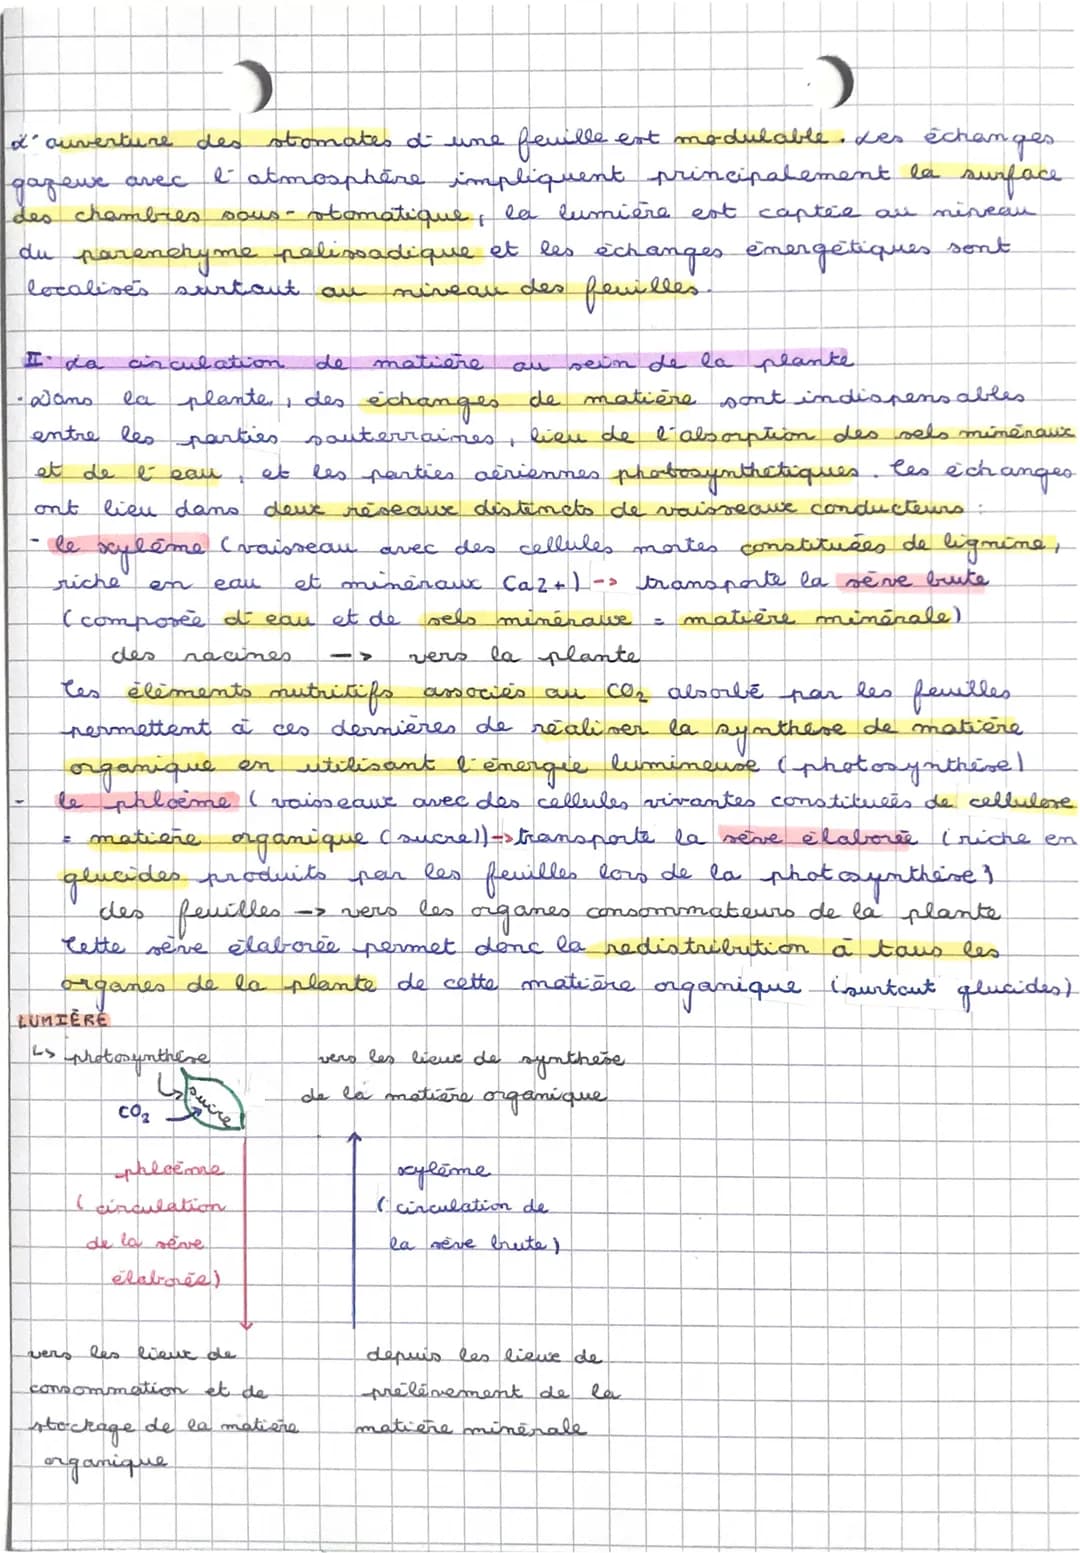 L'ouverture des stomates d'une feuille est modulable. Les échanges
gazeux avec l'atmosphère impliquent principalement la surface
des chambres sous-stomatique, la lumière est captée au niveau
du parenchyme palissadique et les échanges énergétiques sont
localisés surtout au niveau des feuilles.
II. La circulation de matière au sein de la plante
• Dans la plante, des échanges de matière sont indispensables
entre les parties souterraines, lieu de l'absorption des sels minéraux
et de l'eau, et les parties aériennes photosynthétiques. Ces échanges
ont lieu dans deux réseaux distincts de vaisseaux conducteurs :
- le xylème (vaisseau avec des cellules mortes constituées de lignine,
riche en eau et minéraux Ca2+) -> transporte la sève brute
(composée d'eau et de sels minéraux = matière minérale)
des racines -> vers la plante
Ces éléments nutritifs associés au CO₂ absorbé par les feuilles
permettent à ces dernières de réaliser la synthèse de matière
organique en utilisant l'énergie lumineuse (photosynthèse)
- le phloème (vaisseaux avec des cellules vivantes constituées de cellulose
= matière organique (sucre))-> transporte la sève élaborée (riche en
glucides produits par les feuilles lors de la photosynthèse)
des feuilles -> vers les organes consommateurs de la plante
Cette sève élaborée permet donc la redistribution à tous les
organes de la plante de cette matière organique (surtout glucides)
LUMIÈRE
↳ photosynthèse
CO₂
↳ sucre
vers les lieux de synthèse
de la matière organique
phloème
(circulation
de la sève
élaborée)
xylème
(circulation de
la sève brute)
vers les lieux de
consommation et de
stockage de la matière
organique
depuis les lieux de
prélèvement de la
matière minérale